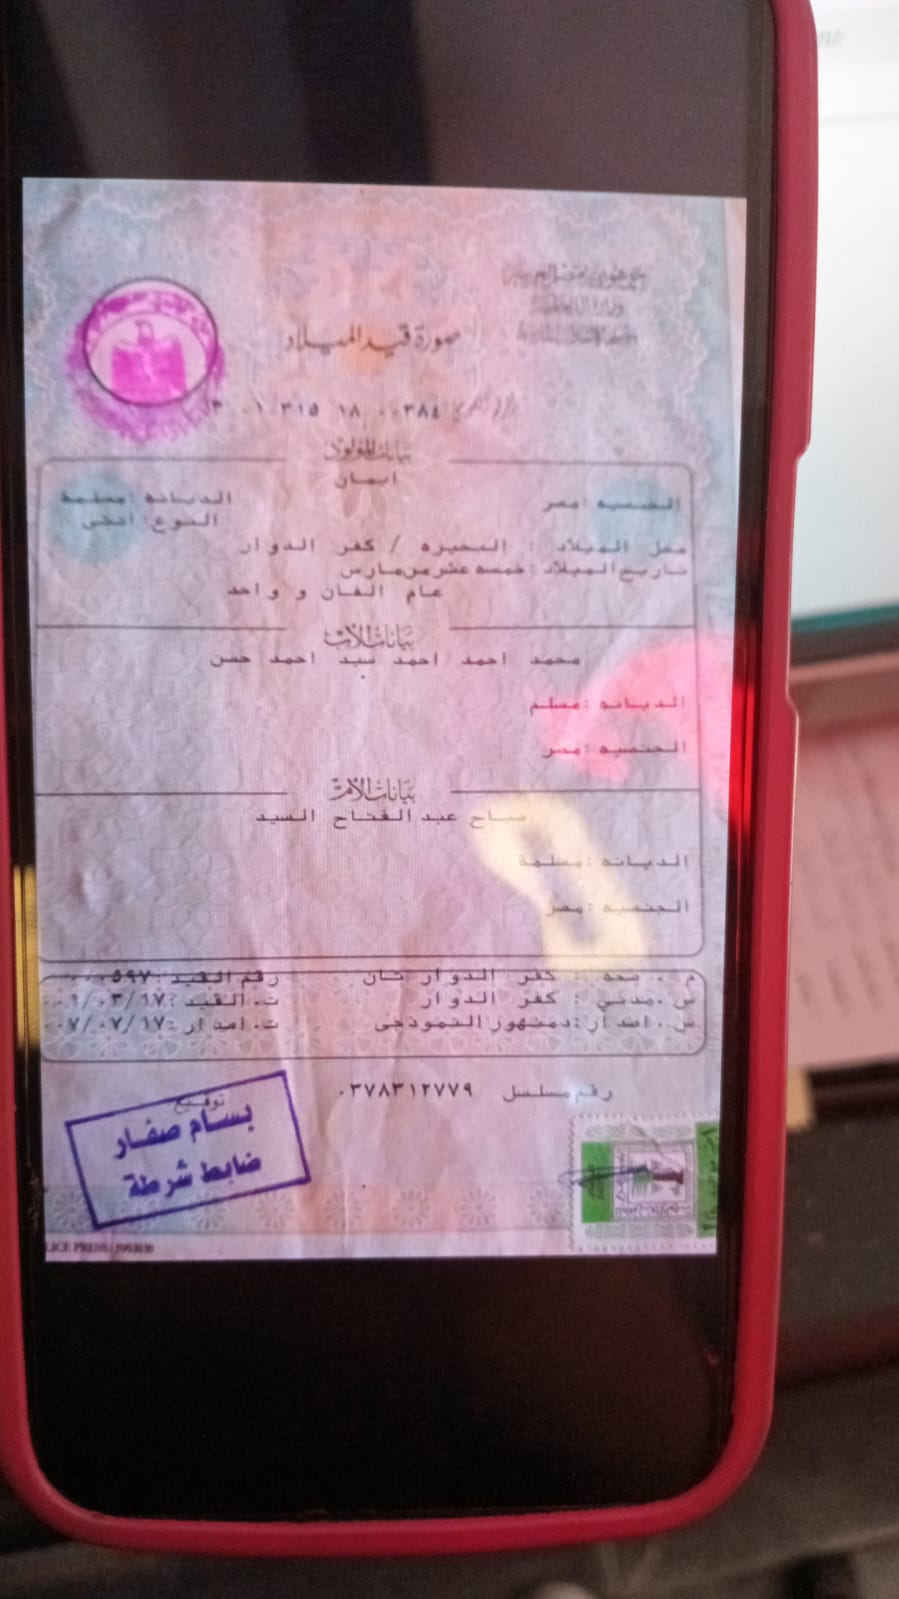 جمهورية مصر العربية
وزارة الداخلية
صورة قيد الميلاد
٣ ٠١٠٣١٥ ١٨ ٠٠٣٨٤
بيانات المولود
ايمان
الجنسيه : مصر الديانه : مسلمة
النوع : انثى
محل الميلاد : البحيره / كفر الدوار
تاريخ الميلاد : خمسه عشر من مارس
عام الفان و واحد
بيانات الأب
محمد احمد احمد سيد احمد حسن
الديانه : مسلم
الجنسيه : مصر
بيانات الأم
صباح عبد الفتاح السيد
الديانه : مسلمة
الجنسيه : مصر
م . صحه : كفر الدوار ثان رقم القيد : ٠٠٠٥٩٧
س . مدني : كفر الدوار ت . القيد : ٠٠١/٠٣/١٧
س . اصدار : دمنهور النموذجى ت . اصدار : ٠٠٧/٠٧/١٧
رقم مسلسل ٠٣٧٨٣١٢٧٧٩
توقيع
بسام صفار
ضابط شرطة